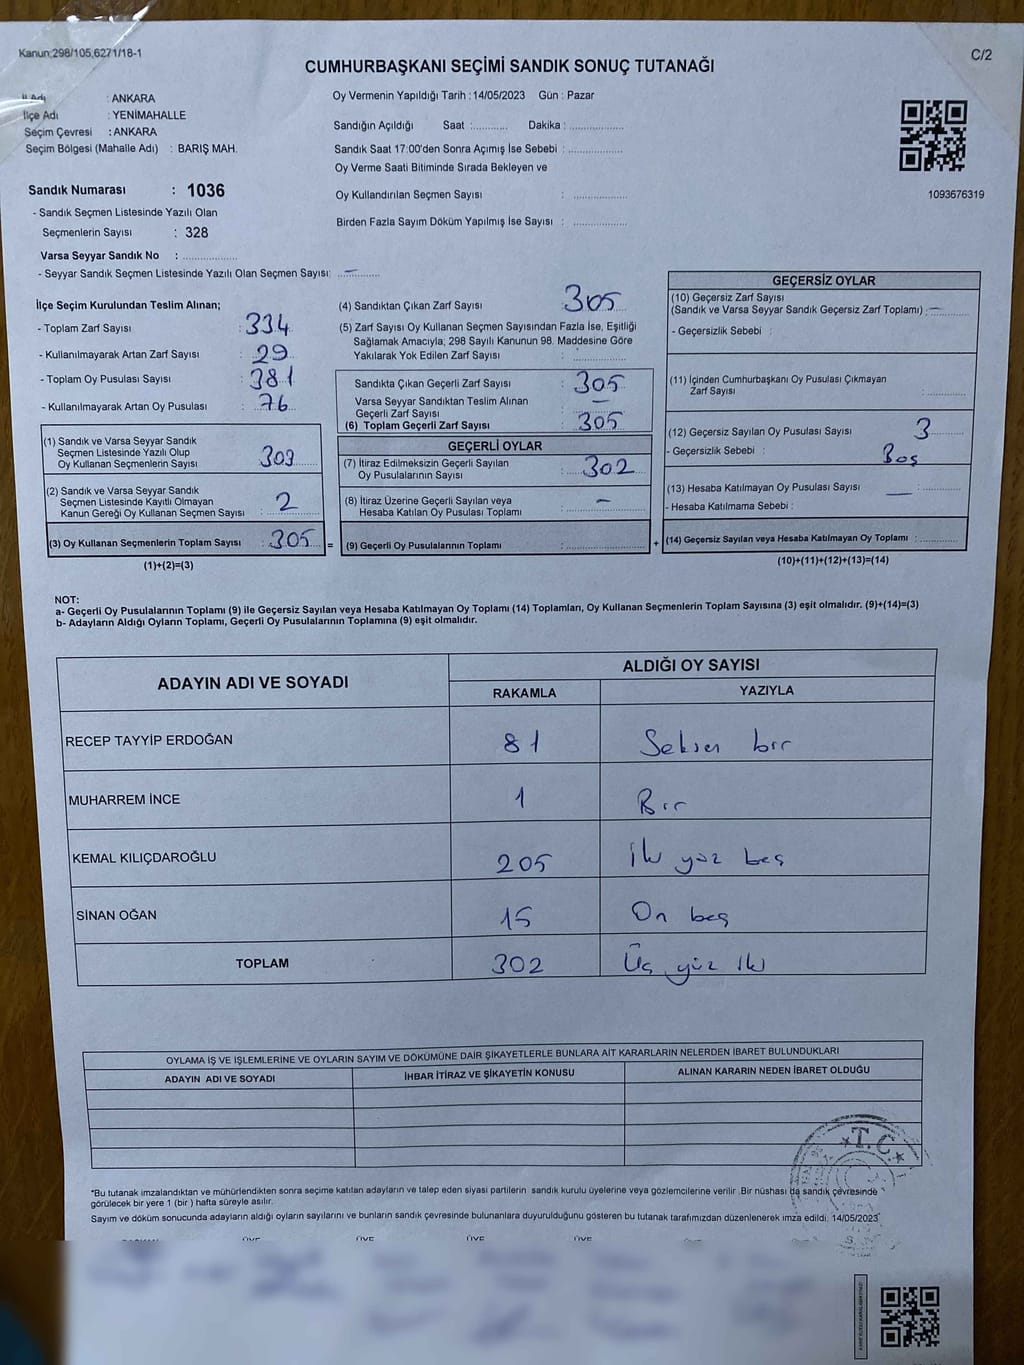 Kanun;298/105,6271/18-1
C/2
CUMHURBAŞKANI SEÇİMİ SANDIK SONUÇ TUTANAĞI
İl Adı : ANKARA
İlçe Adı : YENİMAHALLE
Seçim Çevresi : ANKARA
Seçim Bölgesi (Mahalle Adı) : BARIŞ MAH.
Oy Vermenin Yapıldığı Tarih :14/05/2023 Gün : Pazar
Sandığın Açıldığı Saat :........... Dakika :...................
Sandık Saat 17:00'den Sonra Açımış İse Sebebi : ...................
Oy Verme Saati Bitiminde Sırada Bekleyen ve
Oy Kullandırılan Seçmen Sayısı : ...................
Birden Fazla Sayım Döküm Yapılmış İse Sayısı : ...................
1093676319
Sandık Numarası : 1036
- Sandık Seçmen Listesinde Yazılı Olan
Seçmenlerin Sayısı : 328
Varsa Seyyar Sandık No : ...................
- Seyyar Sandık Seçmen Listesinde Yazılı Olan Seçmen Sayısı: —
İlçe Seçim Kurulundan Teslim Alınan;
- Toplam Zarf Sayısı : 334
- Kullanılmayarak Artan Zarf Sayısı : 29
- Toplam Oy Pusulası Sayısı : 381
- Kullanılmayarak Artan Oy Pusulası : 76
(1) Sandık ve Varsa Seyyar Sandık
Seçmen Listesinde Yazılı Olup
Oy Kullanan Seçmenlerin Sayısı : 303
(2) Sandık ve Varsa Seyyar Sandık
Seçmen Listesinde Kayıtlı Olmayan
Kanun Gereği Oy Kullanan Seçmen Sayısı : 2
(3) Oy Kullanan Seçmenlerin Toplam Sayısı : 305
(1)+(2)=(3)
=
(4) Sandıktan Çıkan Zarf Sayısı : 305
(5) Zarf Sayısı Oy Kullanan Seçmen Sayısından Fazla İse, Eşitliği
Sağlamak Amacıyla; 298 Sayılı Kanunun 98. Maddesine Göre
Yakılarak Yok Edilen Zarf Sayısı : ...................
Sandıkta Çıkan Geçerli Zarf Sayısı : 305
Varsa Seyyar Sandıktan Teslim Alınan
Geçerli Zarf Sayısı : —
(6) Toplam Geçerli Zarf Sayısı : 305
GEÇERLİ OYLAR
(7) İtiraz Edilmeksizin Geçerli Sayılan
Oy Pusulalarının Sayısı : 302
(8) İtiraz Üzerine Geçerli Sayılan veya
Hesaba Katılan Oy Pusulası Toplamı : —
(9) Geçerli Oy Pusulalarının Toplamı : ...................
+
GEÇERSİZ OYLAR
(10) Geçersiz Zarf Sayısı
(Sandık ve Varsa Seyyar Sandık Geçersiz Zarf Toplamı) : —
- Geçersizlik Sebebi :
(11) İçinden Cumhurbaşkanı Oy Pusulası Çıkmayan
Zarf Sayısı : ............
(12) Geçersiz Sayılan Oy Pusulası Sayısı : 3
- Geçersizlik Sebebi : Boş
(13) Hesaba Katılmayan Oy Pusulası Sayısı : —
- Hesaba Katılmama Sebebi :
(14) Geçersiz Sayılan veya Hesaba Katılmayan Oy Toplamı : ............
(10)+(11)+(12)+(13)=(14)
NOT:
a- Geçerli Oy Pusulalarının Toplamı (9) ile Geçersiz Sayılan veya Hesaba Katılmayan Oy Toplamı (14) Toplamları, Oy Kullanan Seçmenlerin Toplam Sayısına (3) eşit olmalıdır. (9)+(14)=(3)
b- Adayların Aldığı Oyların Toplamı, Geçerli Oy Pusulalarının Toplamına (9) eşit olmalıdır.
ADAYIN ADI VE SOYADI ALDIĞI OY SAYISI
RAKAMLA YAZIYLA
RECEP TAYYİP ERDOĞAN 81 Seksen bir
MUHARREM İNCE 1 Bir
KEMAL KILIÇDAROĞLU 205 İki yüz beş
SİNAN OĞAN 15 On beş
TOPLAM 302 Üç yüz iki
OYLAMA İŞ VE İŞLEMLERİNE VE OYLARIN SAYIM VE DÖKÜMÜNE DAİR ŞİKAYETLERLE BUNLARA AİT KARARLARIN NELERDEN İBARET BULUNDUKLARI
ADAYIN ADI VE SOYADI İHBAR İTİRAZ VE ŞİKAYETİN KONUSU ALINAN KARARIN NEDEN İBARET OLDUĞU
T.C.
*Bu tutanak imzalandıktan ve mühürlendikten sonra seçime katılan adayların ve talep eden siyasi partilerin sandık kurulu üyelerine veya gözlemcilerine verilir .Bir nüshası da sandık çevresinde
görülecek bir yere 1 (bir ) hafta süreyle asılır.
Sayım ve döküm sonucunda adayların aldığı oyların sayılarını ve bunların sandık çevresinde bulunanlara duyurulduğunu gösteren bu tutanak tarafımızdan düzenlenerek imza edildi. 14/05/2023
ÜYE ÜYE ÜYE ÜYE